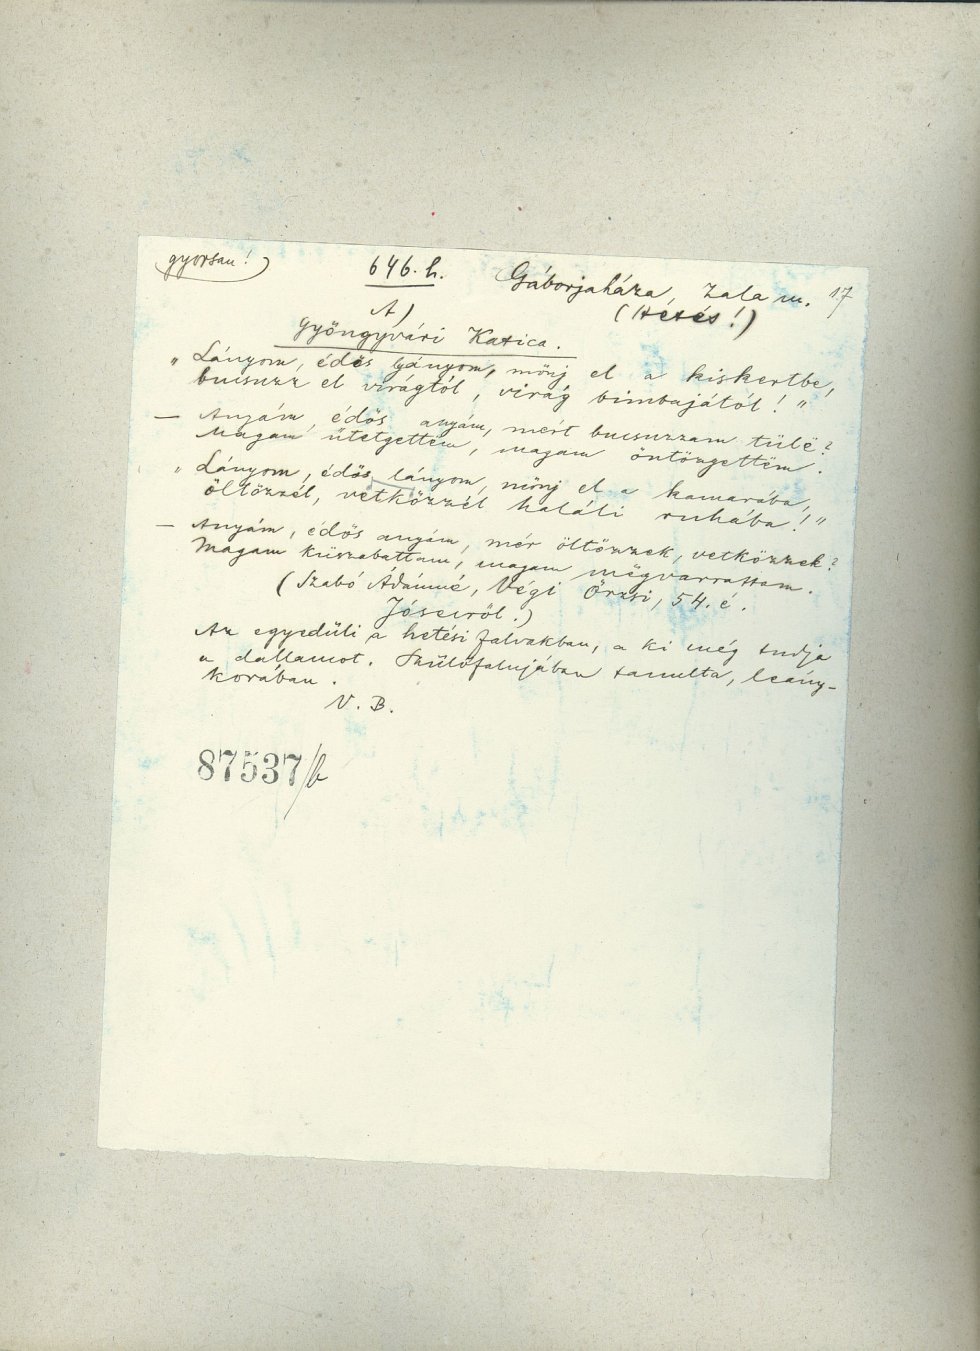 gyorsan!)
646. h.
Gáborjaháza, Zala m. 17
(Hetés!)
A)
Gyöngyvári Katica.
„Lányom, édös lányom, mönj el a kiskertbe,
bucsuzz el virágtól, virág bimbajától!"
— Anyám édös anyám, mért bucsuzzam tülë?
Magam ütetgettem, magam öntözgettëm.
„Lányom, édös lányom, mönj el a kamarába,
öltözzél, vetközzél haláli ruhába!"
— Anyám, édös anyám, mér öltözzek, vetközzek?
Magam kiszabattam, magam mëgvarrattam.
(Szabó Ádámné, Végi Örzsi, 54. é.
Jósecröl.)
Az egyedüli a hetési falvakban, a ki még tudja
a dallamot. Szülőfalujában tanulta, leány-
korában.
V. B.
87537/b